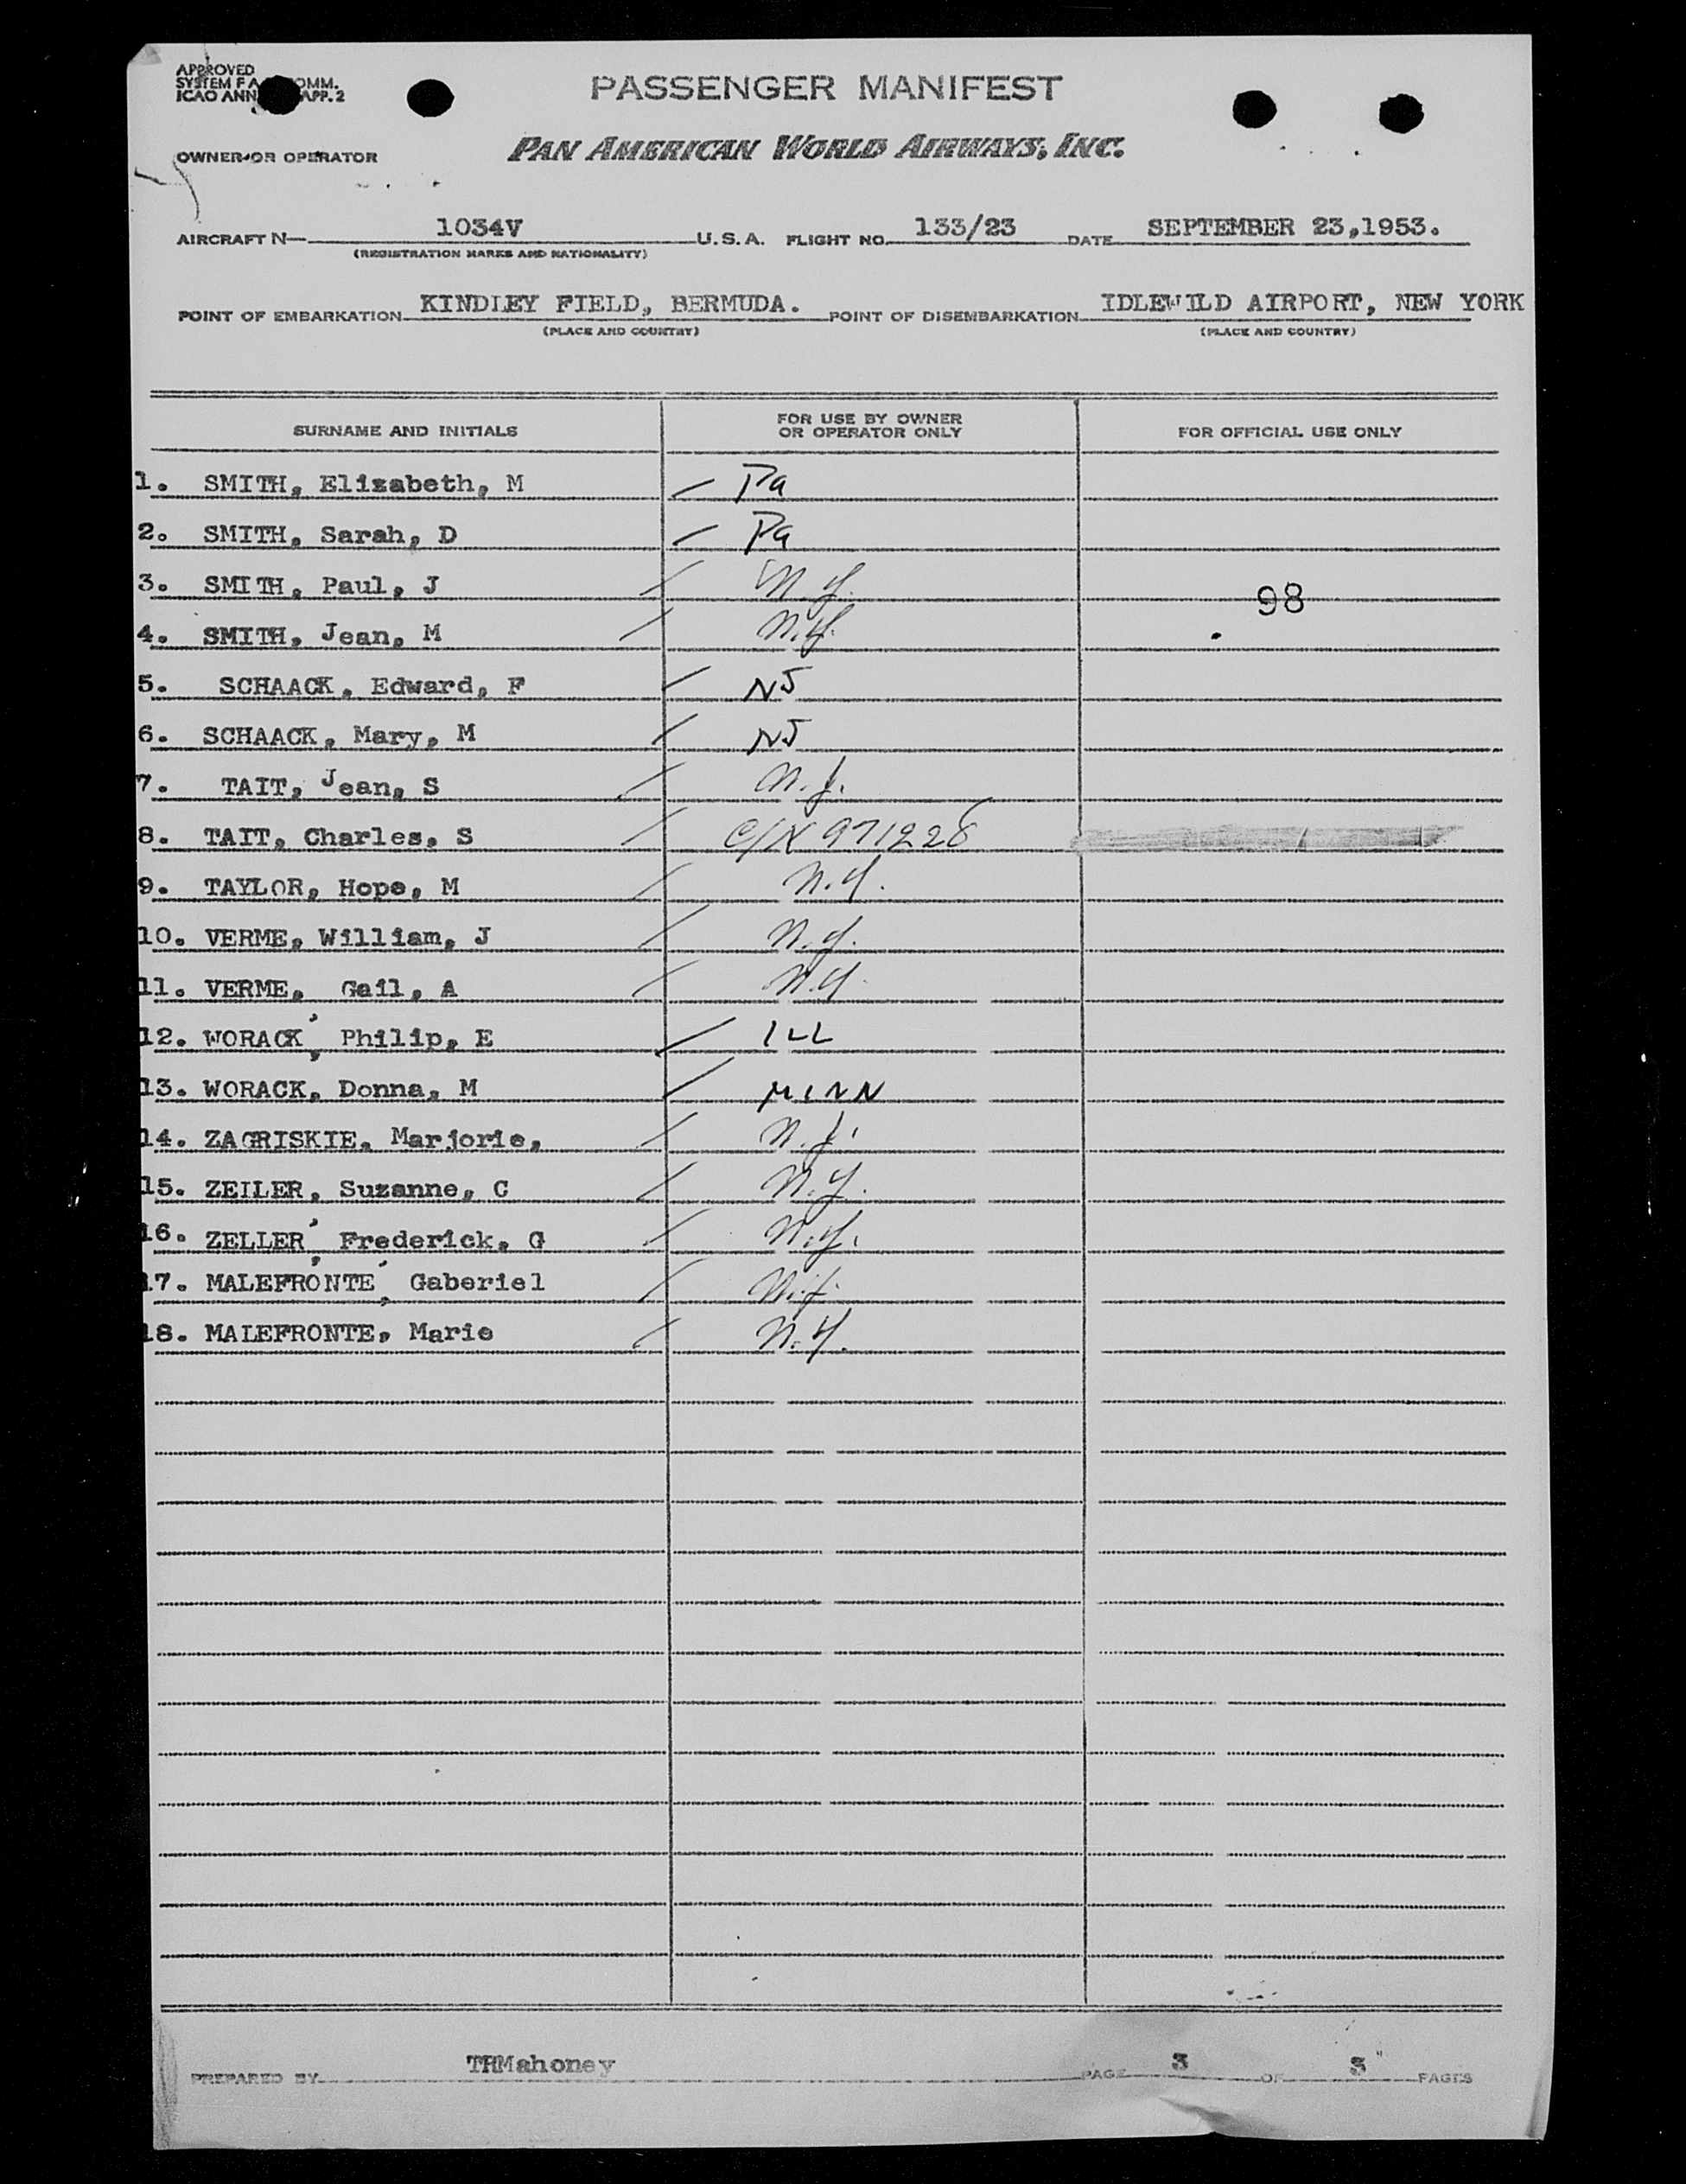 APPROVED
SYSTEM F A COMM.
ICAO ANN APP. 2
PASSENGER MANIFEST
OWNER OR OPERATOR PAN AMERICAN WORLD AIRWAYS, INC.
AIRCRAFT N— 1034V U.S.A. FLIGHT NO. 133/23 DATE SEPTEMBER 23,1953.
(REGISTRATION MARKS AND NATIONALITY)
POINT OF EMBARKATION KINDLEY FIELD, BERMUDA. POINT OF DISEMBARKATION IDLEWILD AIRPORT, NEW YORK
(PLACE AND COUNTRY) (PLACE AND COUNTRY)
SURNAME AND INITIALS FOR USE BY OWNER OR OPERATOR ONLY FOR OFFICIAL USE ONLY
1. SMITH, Elizabeth, M Pa
2. SMITH, Sarah, D Pa
3. SMITH, Paul, J N.Y. 98
4. SMITH, Jean, M N.Y.
5. SCHAACK, Edward, F NJ
6. SCHAACK, Mary, M NJ
7. TAIT, Jean, S N.J.
8. TAIT, Charles, S C/N 971228
9. TAYLOR, Hope, M N.Y.
10. VERME, William, J N.Y.
11. VERME, Gail, A N.Y.
12. WORACK, Philip, E ILL
13. WORACK, Donna, M MINN
14. ZAGRISKIE, Marjorie, N.J.
15. ZEILER, Suzanne, C N.Y.
16. ZELLER, Frederick, G N.Y.
17. MALEFRONTE, Gaberiel
18. MALEFRONTE, Marie N.Y.
PREPARED BY TRMahoney PAGE 3 OF 3 PAGES